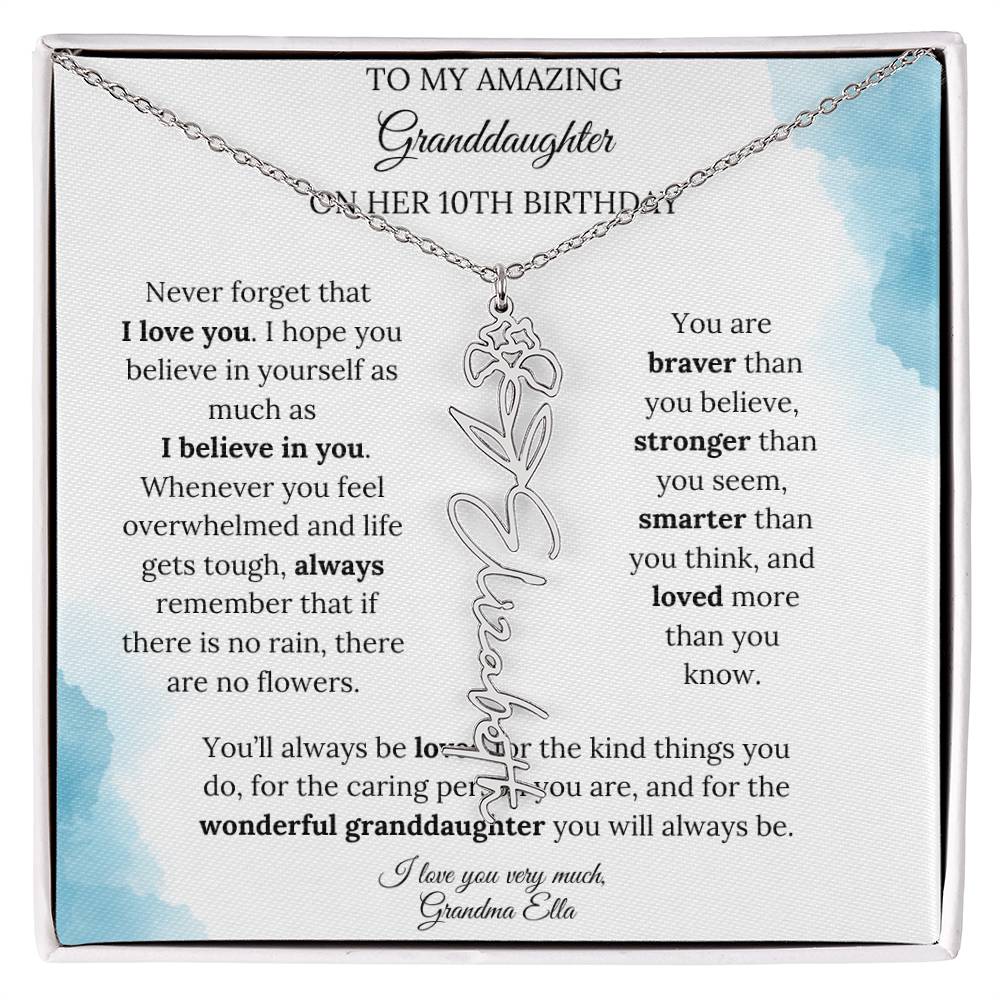 TO MY AMAZING
Granddaughter
ON HER 10TH BIRTHDAY
Never forget that
I love you. I hope you
believe in yourself as
much as
I believe in you.
Whenever you feel
overwhelmed and life
gets tough, always
remember that if
there is no rain, there
are no flowers.
You are
braver than
you believe,
stronger than
you seem,
smarter than
you think, and
loved more
than you
know.
Elizabeth
You'll always be loved for the kind things you
do, for the caring person you are, and for the
wonderful granddaughter you will always be.
I love you very much,
Grandma Ella